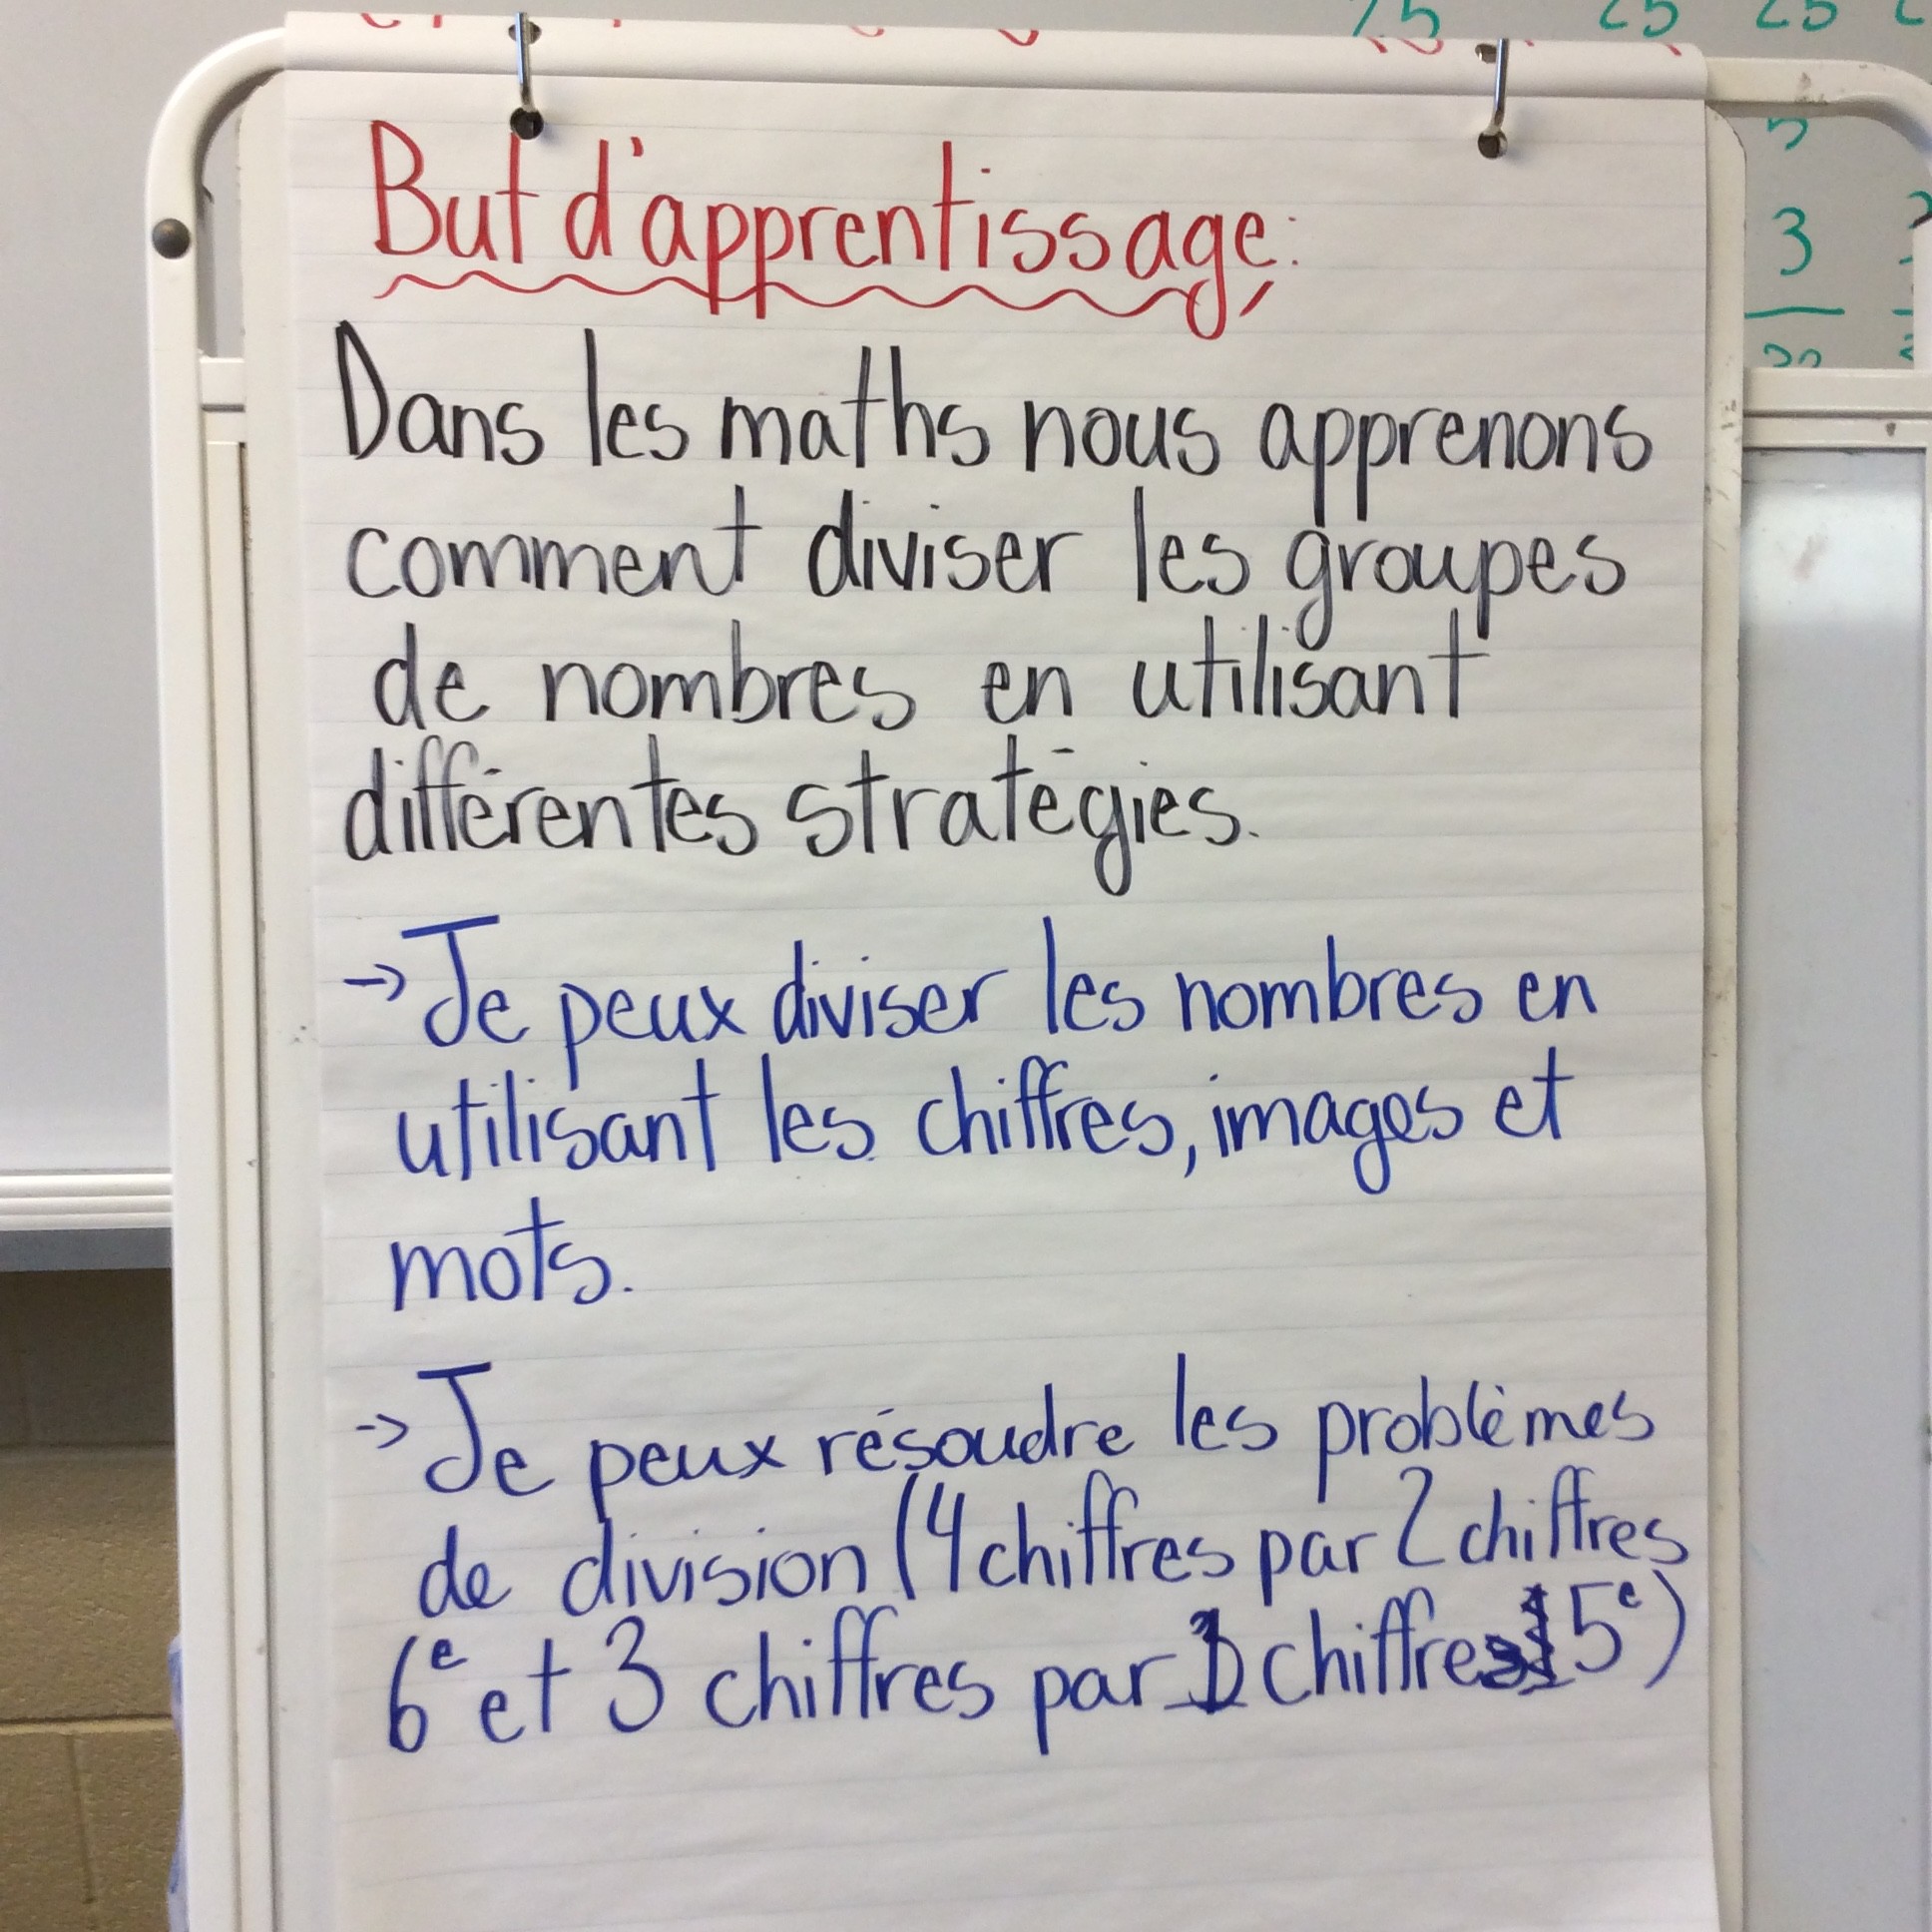 But d'apprentissage:
Dans les maths nous apprenons
comment diviser les groupes
de nombres en utilisant
différentes stratégies.
→ Je peux diviser les nombres en
utilisant les chiffres, images et
mots.
→ Je peux résoudre les problèmes
de division (4 chiffres par 2 chiffres
6e et 3 chiffres par 1 chiffre 5e)
25 25 25
5
3